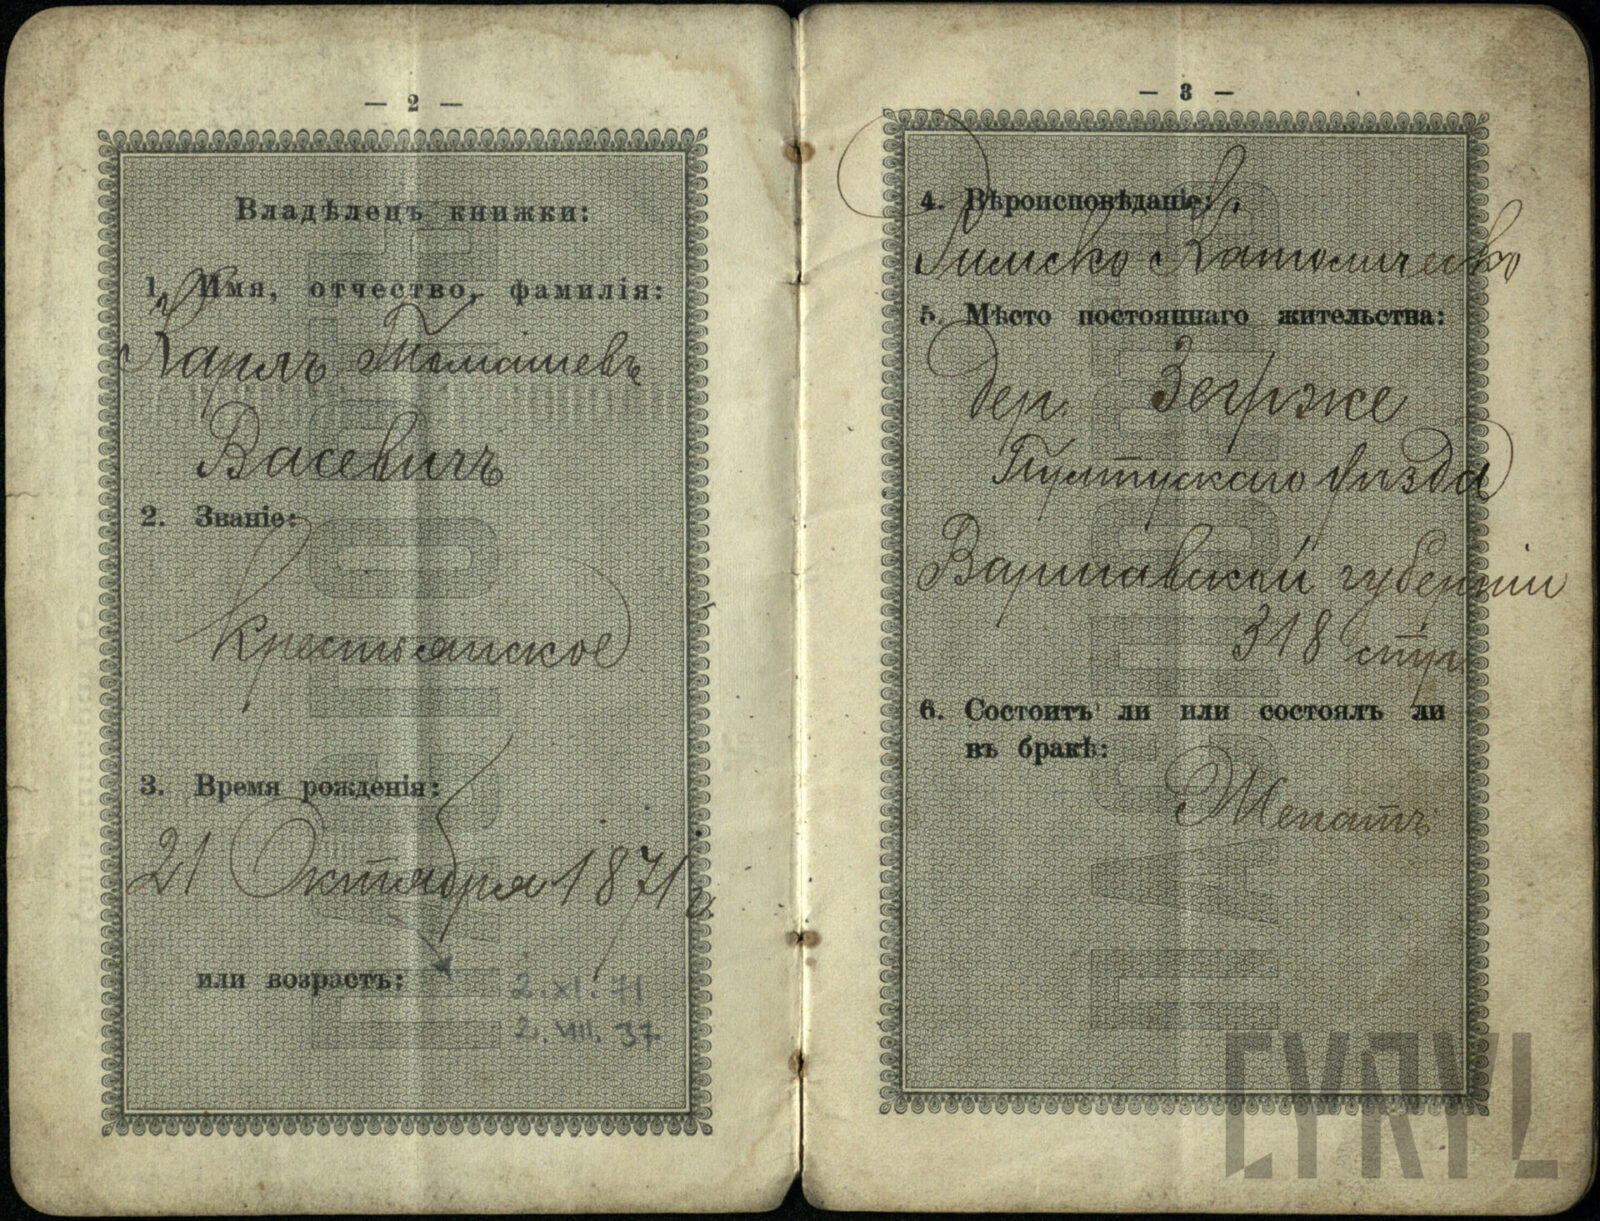 — 2 —
Владѣлецъ книжки:
1. Имя, отчество, фамилія:
Карлъ Томашевъ
Васевичъ
2. Званіе:
Крестьянское
3. Время рожденія:
21 Октября 1871 г
или возрастъ:
2. XI. 71
2. VIII. 37
ПАСПОРТНАЯ
— 3 —
4. Вѣроисповѣданіе:
Римско Католическо
5. Мѣсто постояннаго жительства:
дер. Зегрже
Пултускаго уѣзда
Варшавской губерніи
318 стр.
6. Состоитъ ли или состоялъ ли
въ бракѣ:
Женатъ
CYRYL